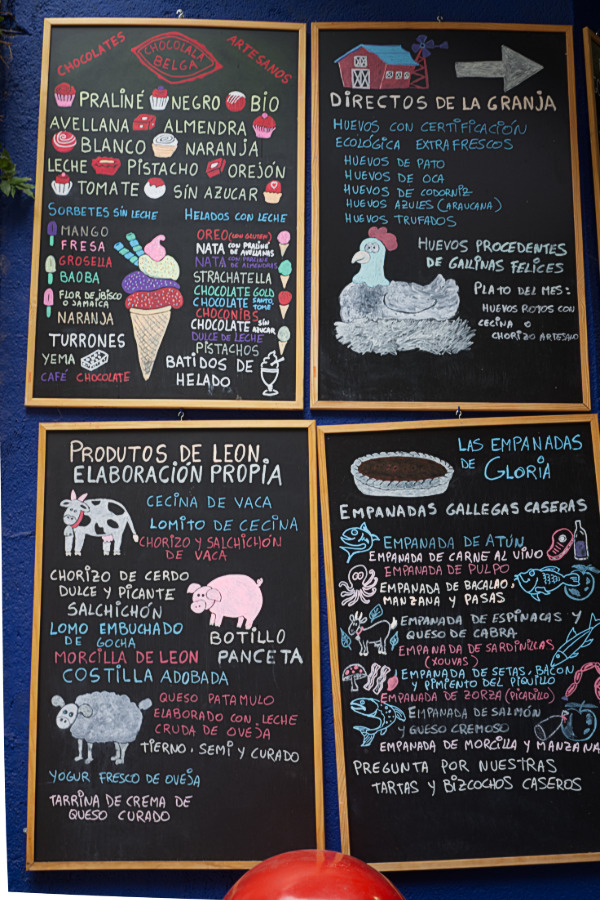 CHOCOLATES
CHOCOLALA
BELGA
ARTESANOS
PRALINÉ NEGRO BIO
AVELLANA ALMENDRA
BLANCO NARANJA
LECHE PISTACHO OREJÓN
TOMATE SIN AZUCAR
SORBETES SIN LECHE
MANGO
FRESA
GROSELLA
BAOBA
FLOR DE JBISCO
O JAMAICA
NARANJA
TURRONES
YEMA
CAFÉ CHOCOLATE
HELADOS CON LECHE
OREO (LOW GLUTEN)
NATA CON PRALINÉ
DE AVELLANAS
NATA CON PRALINÉ
DE ALMENDRAS
STRACHATELLA
CHOCOLATE GOLD
CHOCOLATE SANTO
TOMÉ
CHOCONIBS
CHOCOLATE SIN
AZUCAR
DULCE DE LECHE
PISTACHOS
BATIDOS DE
HELADO
DIRECTOS DE LA GRANJA
HUEVOS CON CERTIFICACIÓN
ECOLÓGICA EXTRAFRESCOS
HUEVOS DE PATO
HUEVOS DE OCA
HUEVOS DE CODORNIZ
HUEVOS AZULES (ARAUCANA)
HUEVOS TRUFADOS
HUEVOS PROCEDENTES
DE GALLINAS FELICES
PLATO DEL MES:
HUEVOS ROTOS CON
CECINA O
CHORIZO ARTESANO
PRODUTOS DE LEON
ELABORACIÓN PROPIA
CECINA DE VACA
LOMITO DE CECINA
CHORIZO Y SALCHICHÓN
DE VACA
CHORIZO DE CERDO
DULCE Y PICANTE
SALCHICHÓN
LOMO EMBUCHADO
DE GOCHA
BOTILLO
MORCILLA DE LEON PANCETA
COSTILLA ADOBADA
QUESO PATAMULO
ELABORADO CON LECHE
CRUDA DE OVEJA
TIERNO, SEMI Y CURADO
YOGUR FRESCO DE OVEJA
TARRINA DE CREMA DE
QUESO CURADO
LAS EMPANADAS
DE GLORIA
EMPANADAS GALLEGAS CASERAS
EMPANADA DE ATÚN
EMPANADA DE CARNE AL VINO
EMPANADA DE PULPO
EMPANADA DE BACALAO,
MANZANA Y PASAS
EMPANADA DE ESPINACAS Y
QUESO DE CABRA
EMPANADA DE SARDINILLAS
(XOUVAS)
EMPANADA DE SETAS, BACON
Y PIMIENTO DEL PIQUILLO
EMPANADA DE ZORZA (PICADILLO)
EMPANADA DE SALMÓN
Y QUESO CREMOSO
EMPANADA DE MORCILLA Y MANZANA
PREGUNTA POR NUESTRAS
TARTAS Y BIZCOCHOS CASEROS